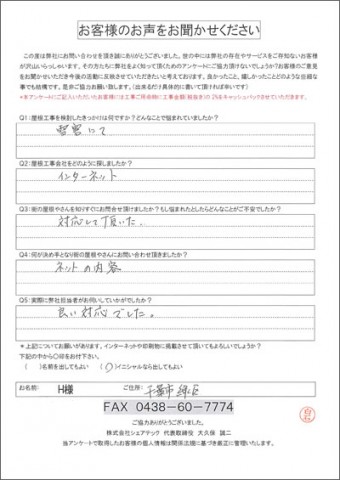 お客様のお声をお聞かせください
この度は弊社にお問い合わせを頂き誠にありがとうございました。世の中には弊社の存在やサービスをご存知ないお客様
が沢山いらっしゃいます。その方たちに弊社をよく知って頂くためのアンケートにご協力頂けないでしょうか?お客様のご意見
をお聞かせいただき今後の活動に反映させていただきたいと考えております。良かったこと、嬉しかったことどのような些細な
事でも結構です。是非ご協力お願い致します。(出来るだけ具体的に書いて頂ければ幸いです)
*本アンケートにご記入いただいたお客様には工事ご用命時に工事金額(税抜き)の2%をキャッシュバックさせていただきます。
Q1:屋根工事を検討したきっかけは何ですか?どんなことで悩まれていましたか?
にて
Q2:屋根工事会社をどのように探しましたか?
インターネット
Q3:街の屋根やさんを知りすぐにお問合せ頂けましたか?もし悩まれたとしたらどんなことがご不安でしたか?
対応して頂いた。
Q4:何が決め手となり街の屋根やさんにお問い合わせ頂きましたか?
ネットの内容
Q5:実際に弊社担当者がお伺いしていかがでしたか?
良い対応でした。
*上記についてお願いがあります。インターネットや印刷物に掲載させて頂いてもよろしいでしょうか?
下記の中から〇印をお付下さい。
( )名前を出してもよい (〇)イニシャルなら出してもよい
お名前: H様 ご住所: 千葉市緑区
FAX 0438-60-7774
ご協力ありがとうございました。
株式会社シェアテック 代表取締役 大久保 誠二
当アンケートで取得したお客様の個人情報は関係法規に基づき厳正に管理いたします。